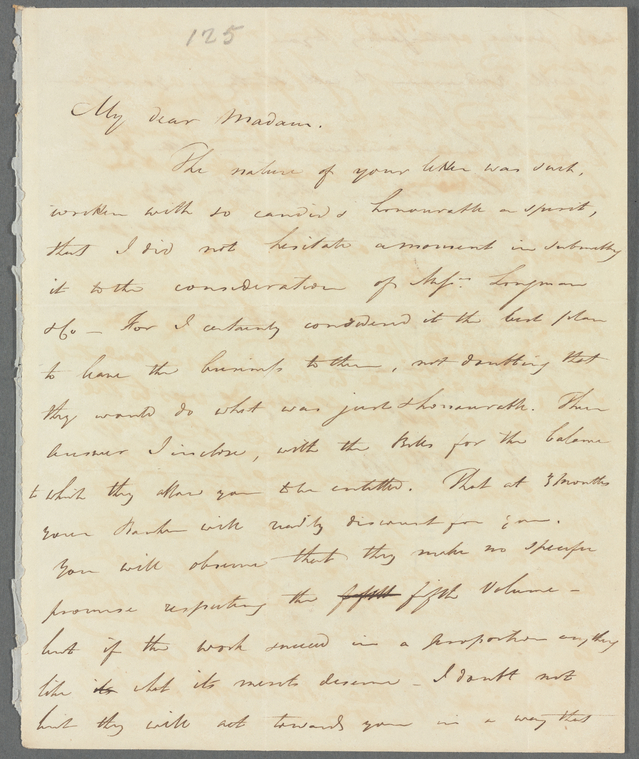 125
My dear Madam.
The nature of your letter was such,
written with so candid & honourable a spirit,
that I did not hesitate a moment in submitting
it to the consideration of Messrs. Longman
& Co — For I certainly considered it the best plan
to leave the business to them, not doubting that
they would do what was just & honourable. Their
answer I inclose, with the Bills for the balance
to which they allow you to be entitled. That at 3 Months
your Banker will readily discount for you.
You will observe that they make no specific
promise respecting the fifth fifth Volume —
but if the work succeed in a proportion any thing
like its what its merits deserve — I doubt not
but they will act towards you in a way that